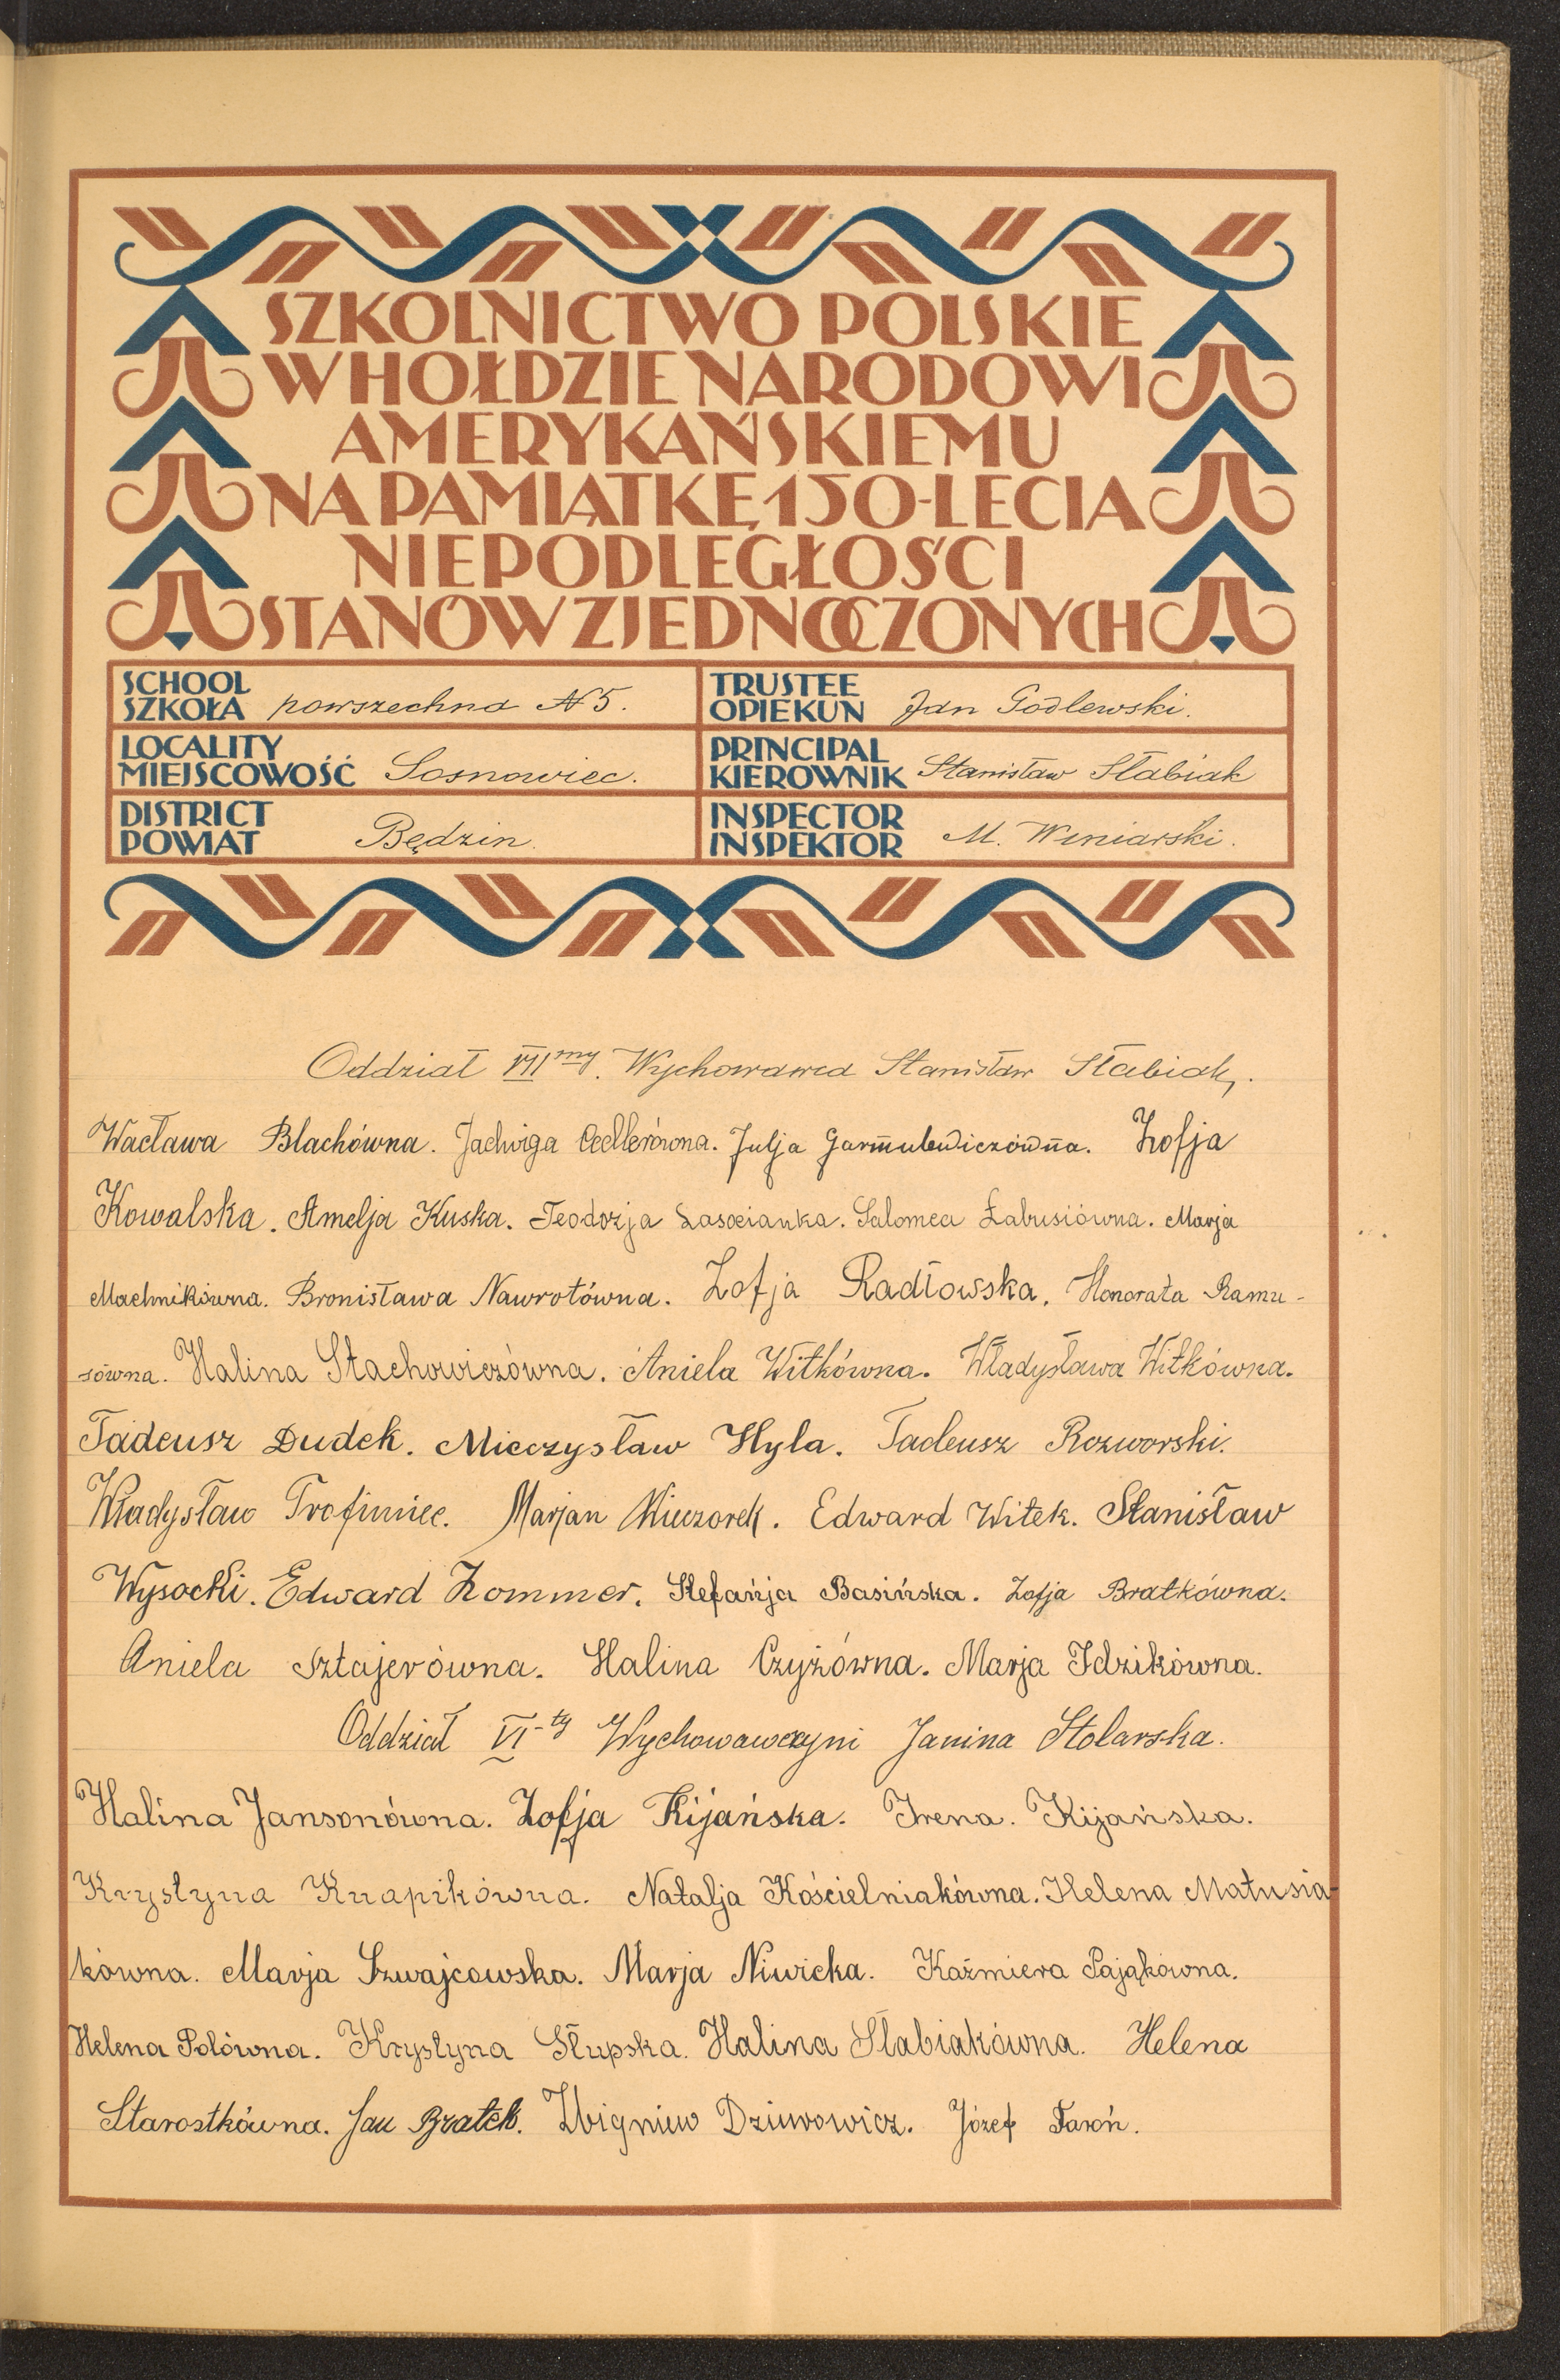 SZKOLNICTWO POLSKIE
W HOŁDZIE NARODOWI
AMERYKAŃSKIEMU
NA PAMIĄTKĘ 150-LECIA
NIEPODLEGŁOŚCI
STANÓW ZJEDNOCZONYCH
SCHOOL
SZKOŁA powszechna N 5.
TRUSTEE
OPIEKUN Jan Godlewski.
LOCALITY
MIEJSCOWOŚĆ Sosnowiec.
PRINCIPAL
KIEROWNIK Stanisław Słabiak
DISTRICT
POWIAT Będzin.
INSPECTOR
INSPEKTOR M. Winiarski.
Oddział VII my. Wychowawca Stanisław Słabiak.
Wacława Blachówna. Jadwiga Cedlerówna. Julja Garmulewiczówna. Zofja
Kowalska. Amelja Kuska. Teodozja Łasocianka. Salomea Łabusiówna. Marja
Machnikówna. Bronisława Nawrotówna. Zofja Radłowska. Honorata Ramu-
sówna. Halina Stachowiczówna. Aniela Witkówna. Władysława Witkówna.
Tadeusz Dudek. Mieczysław Hyla. Tadeusz Rozworski.
Władysław Trofimiec. Marjan Wieczorek. Edward Witek. Stanisław
Wysocki. Edward Zommer. Stefańja Basińska. Zofja Bratkówna.
Aniela Sztajerówna. Halina Czyżówna. Marja Idzikówna.
Oddział VI-ty Wychowawczyni Janina Stolarska.
Halina Jansonówna. Zofja Kijańska. Irena. Kijańska.
Krystyna Knapikówna. Natalja Kościelniakówna. Helena Matusia-
kówna. Marja Szwajcowska. Marja Niwicka. Kaźmiera Pająkówna.
Helena Polówna. Krystyna Słupska. Halina Słabiakówna. Helena
Starostkówna. Jan Bratek. Zbigniew Dziurowicz. Józef